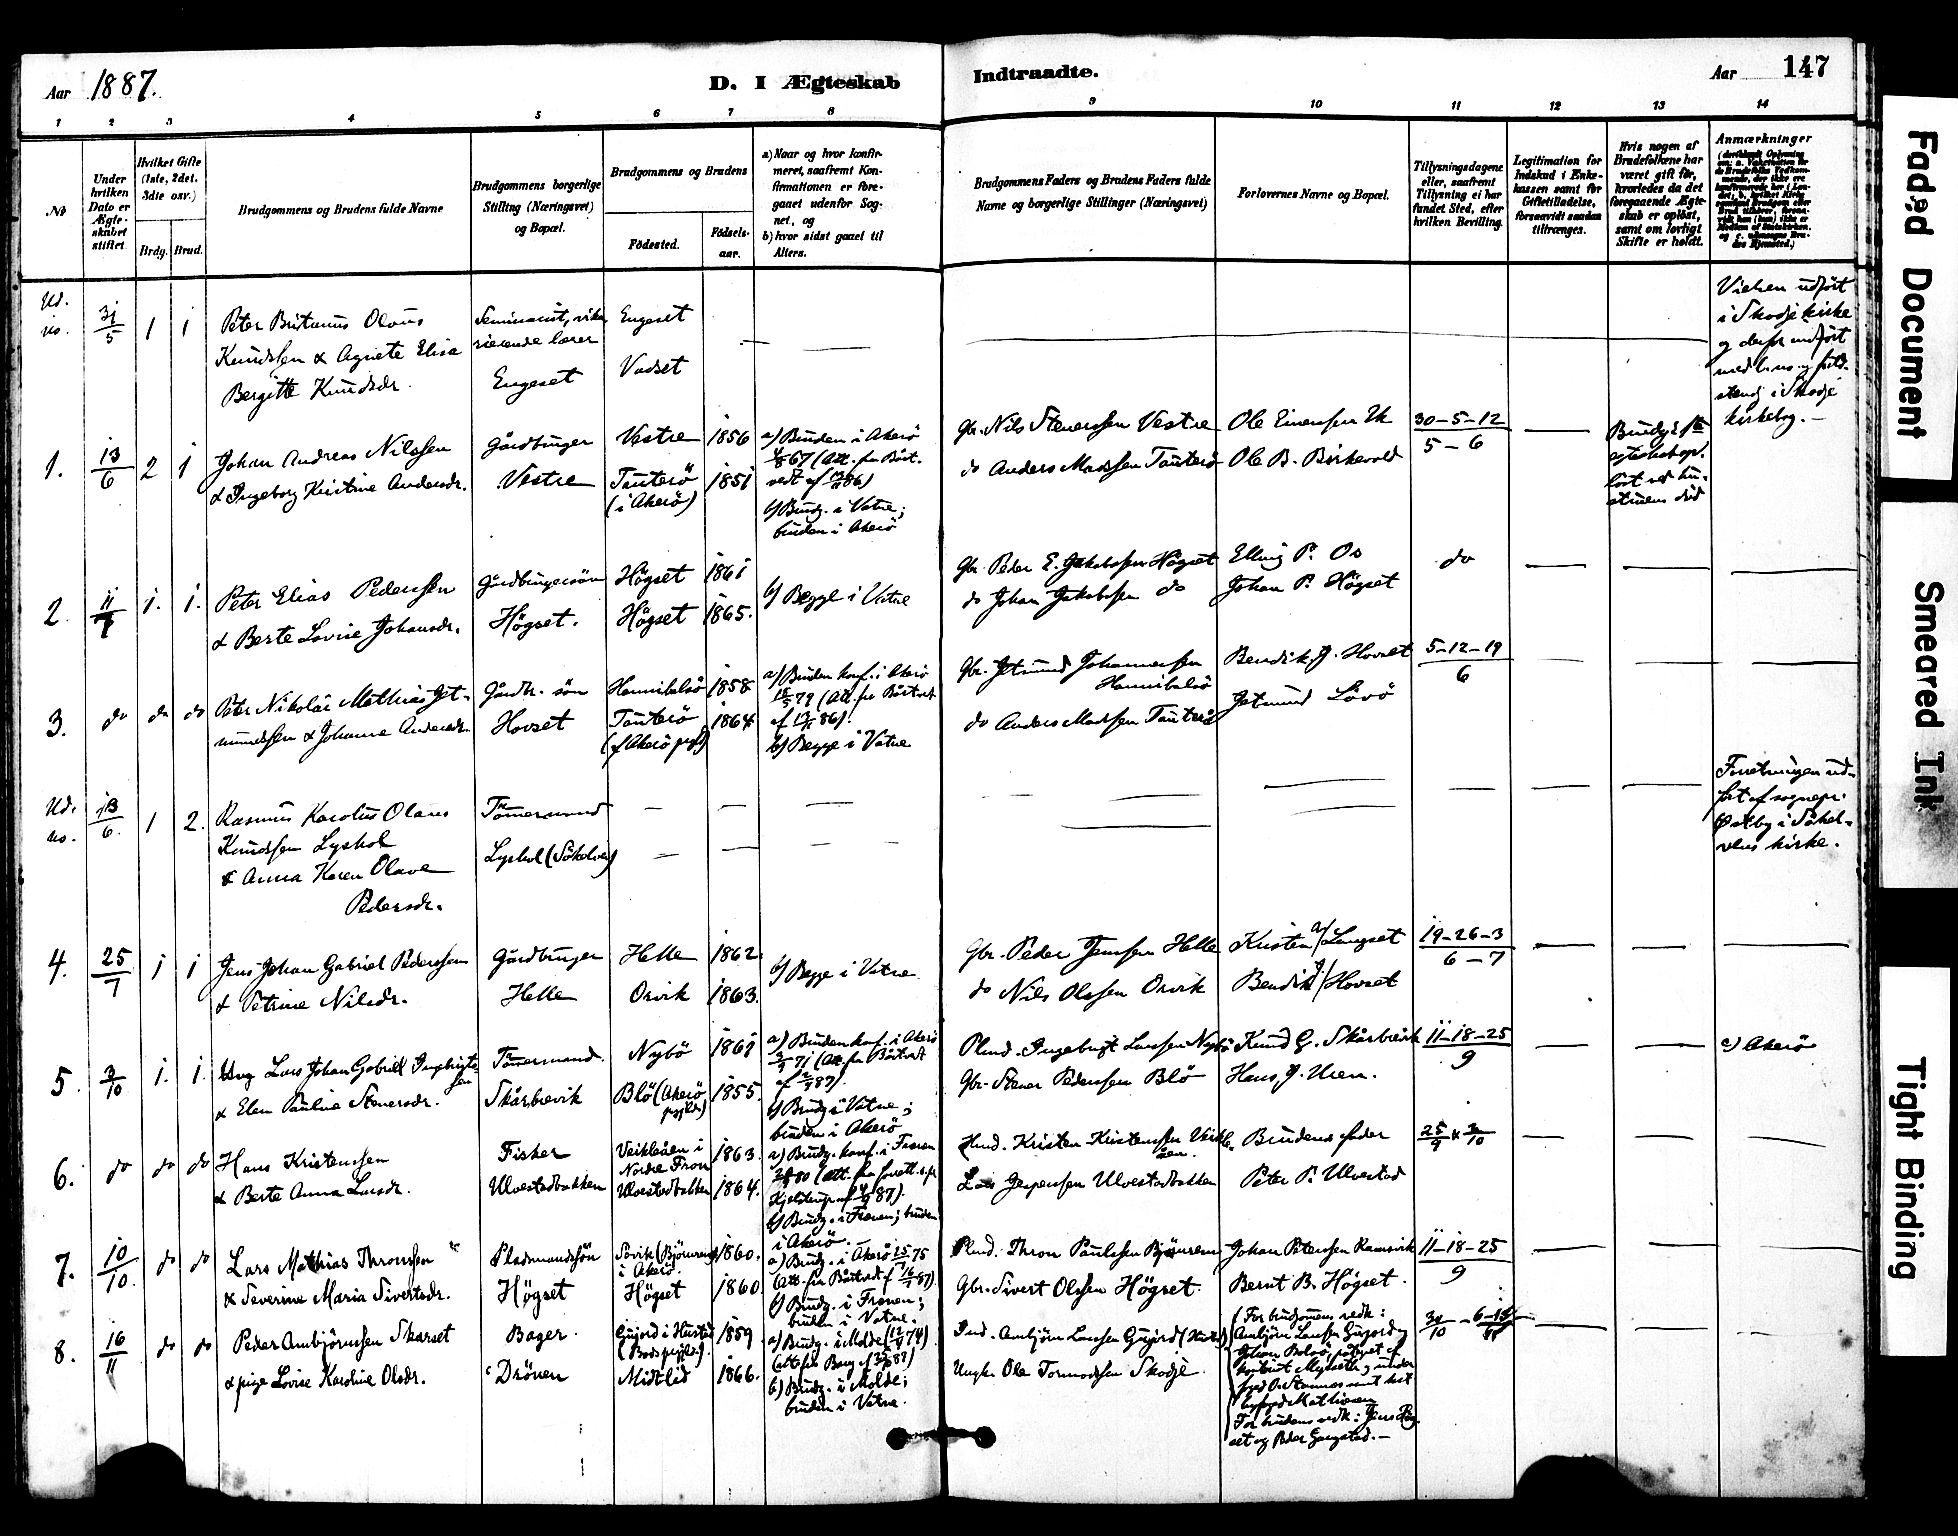 Aar 1887.
D. I Ægteskab
Indtraadte.
Aar 147
1 2 3 4 5 6 7 8 9 10 11 12 13 14
No
Under hvilken Dato er Ægteskabet stiftet.
Hvilket Gifte (1ste, 2det, 3die osv.)
Brdg. Brud.
Brudgommens og Brudens fulde Navne
Brudgommens borgerlige Stilling (Næringsvei) og Bopæl.
Brudgommens og Brudens
Fødested.
Fødsels-aar.
a) Naar og hvor konfirmeret, saafremt Konfirmationen er foregaaet udenfor Sognet, og
b) hvor sidst gaaet til Alters.
Brudgommens Faders og Brudens Faders fulde Navne og borgerlige Stillinger (Næringsvei)
Forlovernes Navne og Bopæl.
Tillysningsdagene eller, saafremt Tillysning ei har fundet Sted, efter hvilken Bevilling.
Legitimation for Indskud i Enkekassen samt for Giftetilladelse, forsaavidt saadan tiltrænges.
Hvis nogen af Brudefolkene har været gift før, hvorledes da det foregaaende Ægteskab er opløst, samt om lovligt Skifte er holdt.
Anmærkninger
Ud. no. 31/5 1 1
Peter Britanus Olaus
Knudsen & Agnete Elisa
Bergitte Knudsdr.
Engeset
Engeset
Vadset
Vielsen udført
i Skodje kirke
og derfor indført
i Skodje
kirkebog.
1. 13/6 2 1
Johan Andreas Nilssen
& Ingeborg Kristine Andersdr.
Gårdbruger
Vestre
Vestre 1856
Tauterö 1851
(i Akerö)
a) Bruden i Akerö
b) Brudg. i Vatne;
bruden i Akerö
Gbr. Nils Stenerssen Vestre
do Anders Madssen Tauterö
Ole Einerssen Uk
Ole B. Birkevold
30-5-12
5-6
2. 11/7 1. 1.
Peter Elias Pederssen
& Berte Lovise Johansdr.
Gårdbrugersön
Högset.
Högset 1861
Högset 1865.
b) Begge i Vatne
Gbr. Peder E. Jakobssen Högset
do Johan Jakobssen do
Elling P. Os
Johan P. Högset
do
3. do do do
Peter Nikolai Mathias Jet-
mundssen & Johanne Andersdr.
Gårdbr. sön
Hovset
Hannibalsö 1858
Tauterö 1864
a) Bruden konf. i Akerö
b) Begge i Vatne
Gbr. Jetmund Johannessen
Hannibalsö
do Anders Madssen Tauterö
Bendik J. Hovset
Jetmund Lövö
5-12-19
6
Ud. no. 13/6. 1 2.
Rasmus Karolus Olaus
Knudssen Lyshol
& Anna Karen Olave
Pedersdr.
Tömermand
Lyshol (Søkelven)
Forretningen ud-
ført af sognepr.
Østby i Søkel-
vens kirke.
4. 25/7 1 1
Jens Johan Gabriel Pederssen
& Petrine Nilsdr.
Gårdbruger
Helle
Helle 1862
Orvik 1863.
b) Begge i Vatne
Gbr. Peder Jenssen Helle
do Nils Olssen Orvik
Kristen Longset
Bendik J. Hovset
19-26-3
6-7
5. 3/10 1. 1.
Ung Lars Johan Gabriel Ingebrigts-
sen
& Elen Pauline Stenersdr.
Tömermand.
Skårbrevik
Nybö 1861
Blö (Akerö 1855.
a) Bruden konf. i Akerö
b) Brudg. i Vatne;
bruden i Akerö
Plmd. Ingebrigt Larssen Nybö
Gbr. Stener Pederssen Blö
Knud G. Skårbrevik
Hans J. Uren.
11-18-25
9
a) Akerö
6. do do do
Hans Kristenssen
& Berte Anna Larsdr.
Fisker
Ulvestadbakken
Veikleåen i
Nordre Fron 1863.
Ulvestadbakken 1864.
a) Brudg. konf. i Frænen
b) Brudg. i Frænen; bruden
i Akerö.
Hmd. Kristen Kristenssen Veikle-
åen.
Lars Jespersen Ulvestadbakken
Brudens fader
Peter P. Ulvestad
25/9 & 3/10
7. 10/10. do do
Lars Mathias Thronssen
& Severine Maria Sivertsdr.
Pladsmandssön
Högset
Sörvik (Björnrem) 1860.
i Akerö.
Högset 1860
a) Brudg. i Akerö 25/7 75
b) Brudg. i Frænen;
bruden i Vatne.
Plmd. Thron Paulssen Björnrem
Gbr. Sivert Olssen Högset.
Johan Peterssen Ramsvik
Bernt B. Högset.
11-18-25
9
8. 16/11 do do
Peder Ambjörnssen Skarset
& pige Lovise Karoline Olsdr.
Bager.
Drönen
Gujord i Hustad 1859
Midtlid 1866.
a) Brudg. i Molde
b) Brudg. i Molde;
bruden i Vatne.
Ind. Ambjörn Larssen Gujord (Hustad)
Ungk. Ole Tormodssen Skodje
(For brudgommens vedk.:
Ambjörn Larssen Gujord og
For brudens vedk.: Jens Hög-
set og Peder Gangstad.
Faded Document
Smeared Ink
Tight Binding